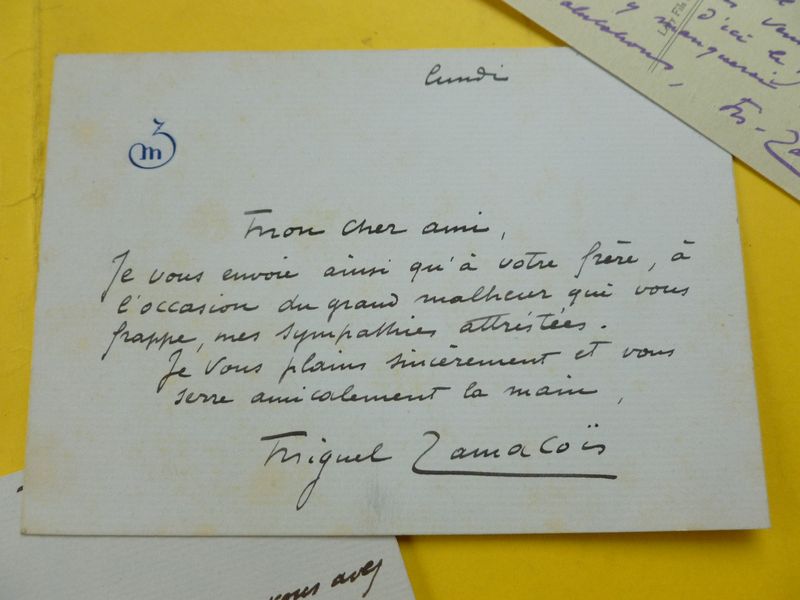 lundi
MZ
Mon cher ami,
Je vous envoie ainsi qu'à votre frère, à
l'occasion du grand malheur qui vous
frappe, mes sympathies attristées.
Je vous plains sincèrement et vous
serre amicalement la main,
Miguel Zamacoïs
d'ici le
y manquerai
vous avez